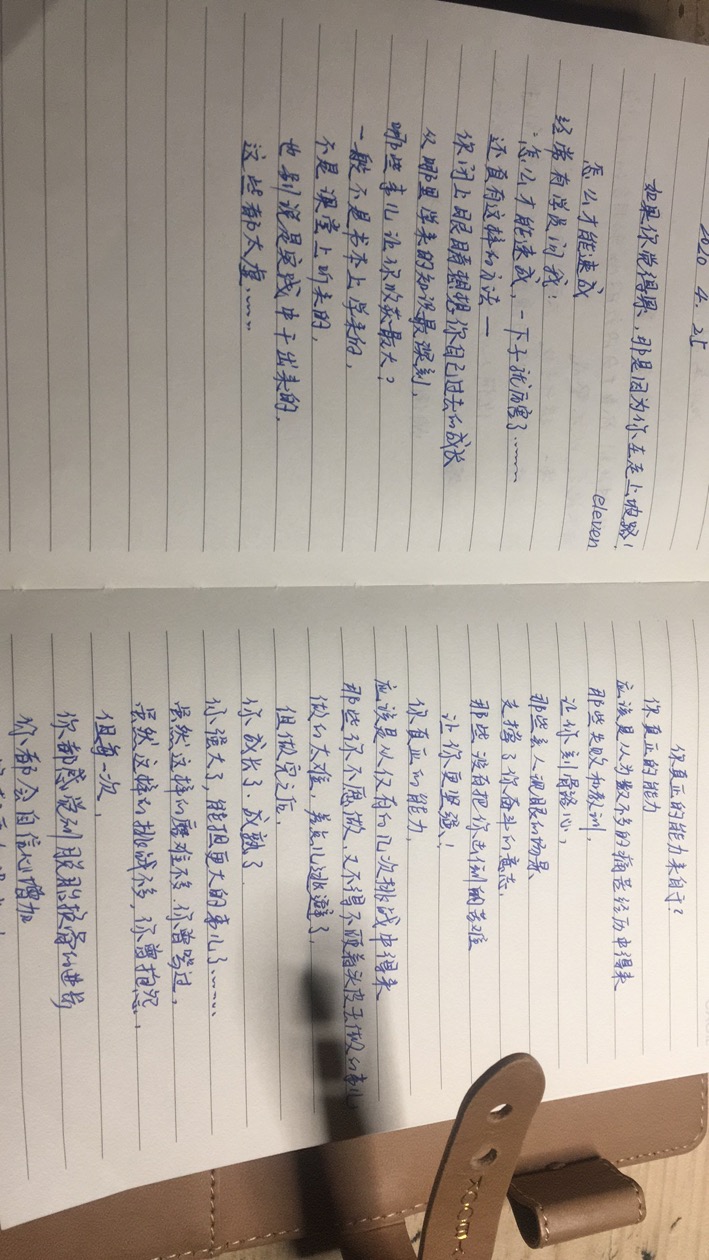 2020. 4. 25
如果你觉得累，那是因为你在走上坡路！
eleven
怎么才能速成
经常有学员问我：
怎么才能速成，一下子就厉害了……
还真有这样的方法—
你闭上眼睛想想你自己过去的成长
从哪里学来的知识最深刻，
哪些事儿让你收获最大？
一般不是书本上学来的，
不是课堂上听来的，
也别说是实战中干出来的，
这些都太虚……
你真正的能力来自于？
你真正的能力
应该是从为数不多的痛苦经历中得来
那些失败和教训，
让你刻骨铭心，
那些丢人现眼的场景
支撑了你奋斗的意志，
那些没有把你击倒的苦难
让你更坚强！
你真正的能力，
应该是从仅有的几次挑战中得来
那些你不愿做，又不得不硬着头皮去做的事儿
做的太难，差点儿逃避了，
但做完之后，
你成长了，成熟了
你强大了，能担更大的事儿了……
虽然这样的磨难不多，你曾骂过，
虽然这样的挑战不多，你曾抱怨，
但每一次，
你都感觉到脱胎换骨的进步
你都会自信心增加